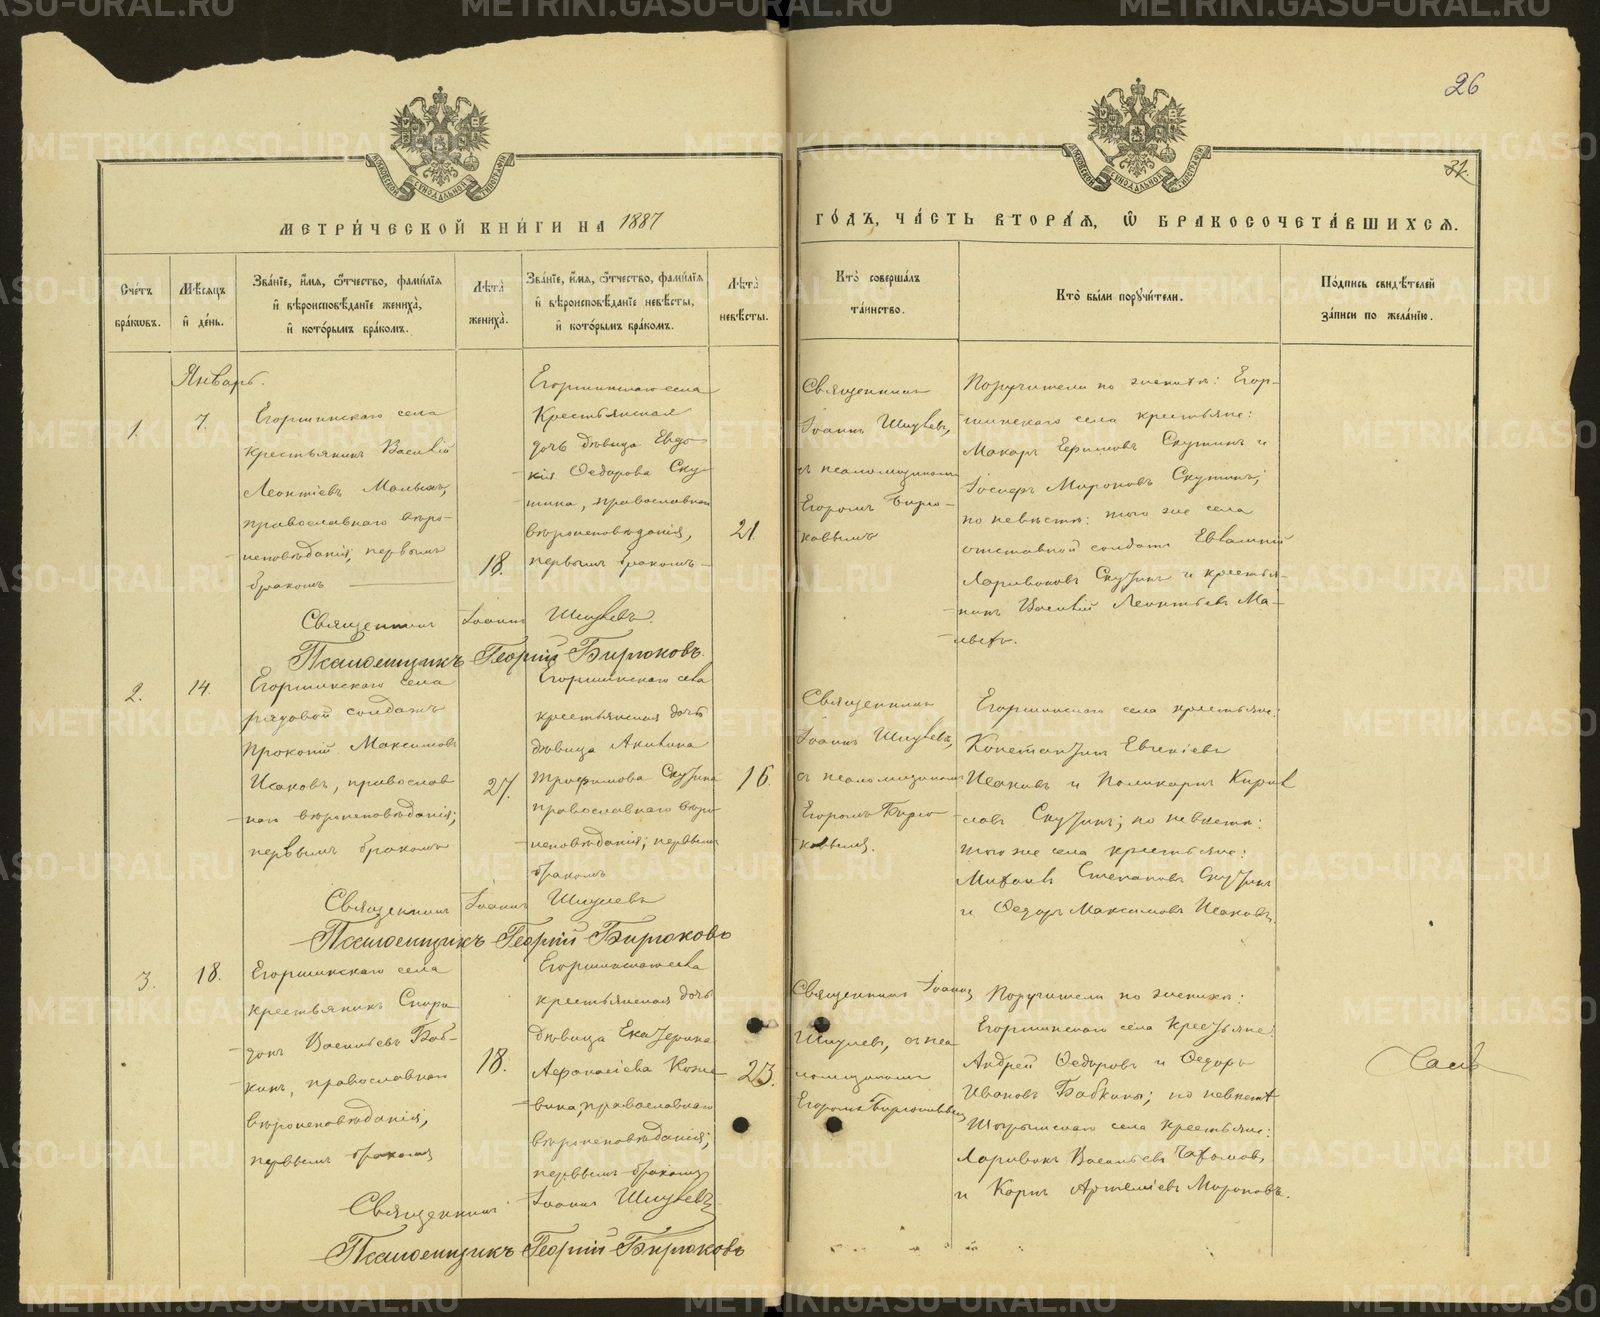 26
31.
МЕТРИ́ЧЕСКОЙ КНИ́ГИ НА 1887
ГО́ДЪ, ЧА́СТЬ ВТОРА́Ѧ, Ѽ БРАКОСОЧЕТА́ВШИХСѦ.
Сче́тъ
бра́кѡвъ.
Мѣ́сяцъ
и҆ де́нь.
Зва́нїе, и҆́мя, ѻ҆́тчество, фами́лїя
и҆ вѣроисповѣ́данїе жениха̀,
и҆ кото́рымъ бра́комъ.
Лѣ́та̀
жениха̀.
Зва́нїе, и҆́мя, ѻ҆́тчество, фами́лїя
и҆ вѣроисповѣ́данїе невѣ́сты,
и҆ кото́рымъ бра́комъ.
Лѣ́та̀
невѣ́сты.
Кто̀ соверша́лъ
та́инство.
Кто̀ бы́ли порꙋчи́тели.
По́дпись свидѣ́телей
за́писи по жела́нїю.
Январь.
1.
7.
Егоршинскаго села
крестьянинъ Василій
Леонтіевъ Малыхъ,
православнаго вѣро-
исповѣданія; первымъ
бракомъ
18.
Егоршинскаго села
Крестьянская
дочь дѣвица Евдо-
кія Ѳедорова Ску-
тина, православнаго
вѣроисповѣданія,
первымъ бракомъ
21.
Священникъ
Іоаннъ Шишевъ,
съ псаломщикомъ
Егоромъ Бирю-
ковымъ
Поручители по женихѣ: Егор-
шинскаго села крестьяне:
Макаръ Ефимовъ Скутинъ и
Іосифъ Мироновъ Скутинъ;
по невѣстѣ: того же села
отставной солдатъ Евлампій
Ларивоновъ Скутинъ и крестья-
нинъ Василій Леонтьевъ Ма-
лыхъ.
Священникъ Іоаннъ Шишевъ.
Псаломщикъ Георгій Бирюковъ.
2.
14.
Егоршинскаго села
рядовой солдатъ
Прокопій Максимовъ
Исаковъ, православ-
наго вѣроисповѣданія;
первымъ бракомъ
27.
Егоршинскаго села
крестьянская дочь
дѣвица Акилина
Трофимова Скутина
православнаго вѣро-
исповѣданія; первымъ
бракомъ
16
Священникъ
Іоаннъ Шишевъ,
съ псаломщикомъ
Егоромъ Бирю-
ковымъ.
Егоршинскаго села крестьяне:
Константинъ Евгеніевъ
Исаковъ и Поликарпъ Кирил-
ловъ Скутинъ; по невѣстѣ:
того же села крестьяне:
Михаилъ Степановъ Скутинъ
и Ѳедоръ Максимовъ Исаковъ.
Священникъ Іоаннъ Шишевъ
Псаломщикъ Георгій Бирюковъ
3.
18.
Егоршинскаго села
крестьянинъ Спири-
донъ Васильевъ Баб-
кинъ, православнаго
вѣроисповѣданія,
первымъ бракомъ
18.
Егоршинскаго села
крестьянская дочь
дѣвица Екатерина
Аѳанасіева Коже-
вина, православнаго
вѣроисповѣданія;
первымъ бракомъ
23.
Священникъ Іоаннъ
Шишевъ, съ пса-
ломщикомъ
Егоромъ Бирюковымъ
Поручители по женихѣ:
Егоршинскаго села Крестьяне:
Андрей Ѳедоровъ и Ѳедоръ
Ивановъ Бабкины; по невѣстѣ
села крестьяне:
Ларивонъ Васильевъ
и Карпъ Артеміевъ Мироновъ.
Священникъ Іоаннъ Шишевъ
Псаломщикъ Георгій Бирюковъ
METRIKI.GASO-URAL.RU